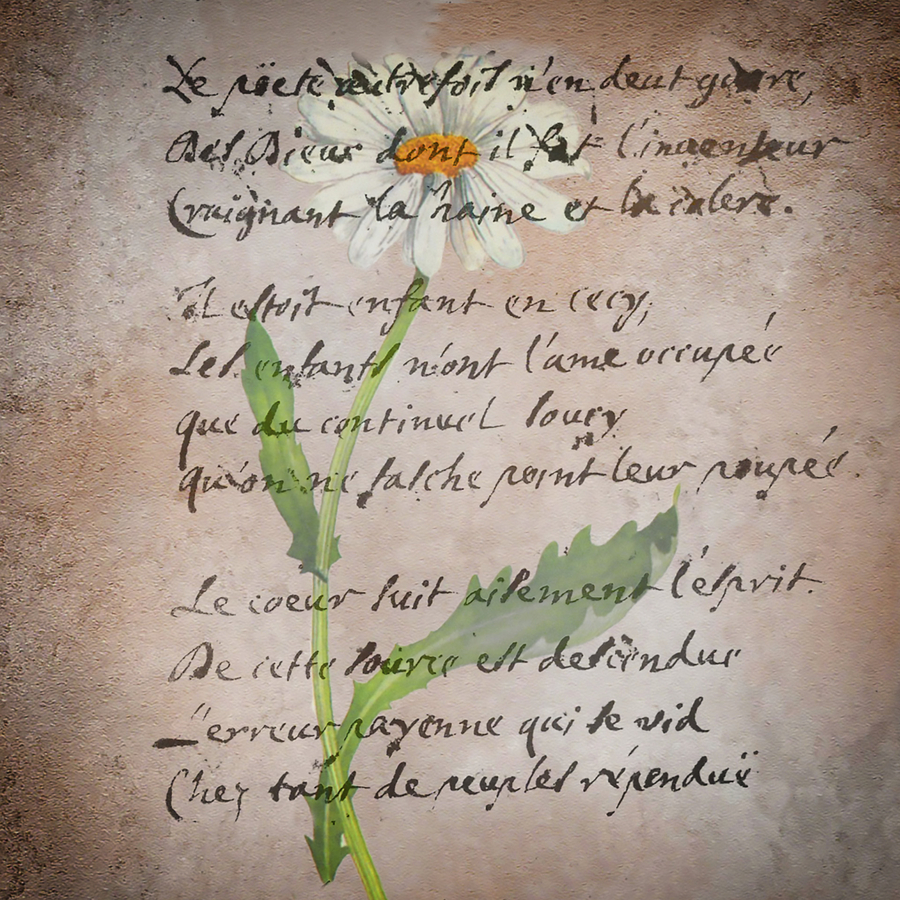 Le pöete autrefoit n'en deut guere,
Des Dieux dont il fut l'inuenteur
Craignant la haine et la colere.
Il estoit enfant en cecy,
Les enfants n'ont l'ame occupée
que du continuel soucy
qu'on ne fasche point leur poupée.
Le coeur suit aisement l'esprit.
De cette source est descendue
L'erreur payenne qui se vid
Chez tant de peuples répenduë